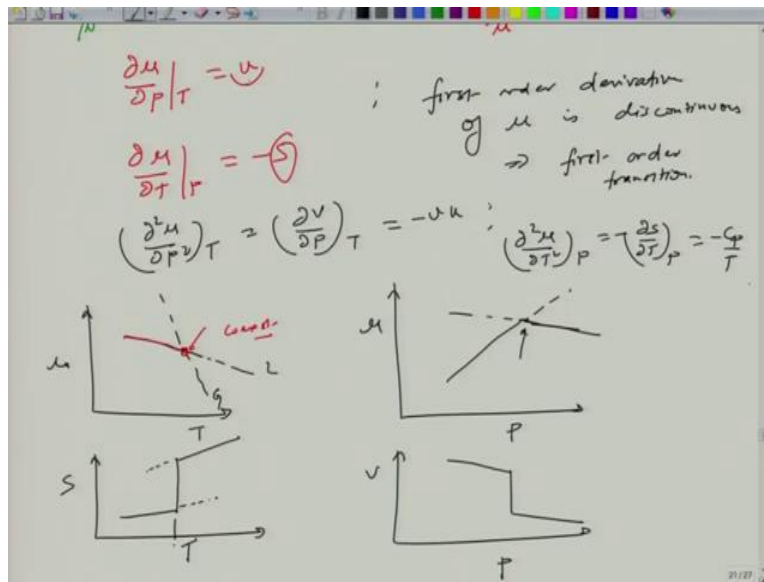 ∂μ/∂P|T = v
; first order derivative
of μ is discontinuous
⇒ first order
transition.
∂μ/∂T|P = -S
(∂²μ/∂P²)T = (∂V/∂P)T = -vκ ; (∂²μ/∂T²)P = -(∂S/∂T)P = -Cp/T
μ
L
G
T
μ
P
S
T
V
P
21/27